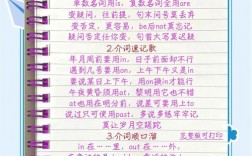 单数名词用is，复数全部用are
变疑问，往前提，句末问号莫丢弃
变否定，更容易，be后not莫忘记
疑问否定任你变，句首大写莫迟疑
2.介词速记歌
年月周前要用in，日子前面却不行
遇到几号要用on，上午下午又是in
要说某日上下午，用on换in才能行
午夜黄昏须用at，黎明用它也不错
at也用在明分前，说差可要用上to
说过只可使用past，多说多练牢牢记
莫让岁月空蹉跎
3.介词顺口溜
见整版可打印
in在……里，out在……外，